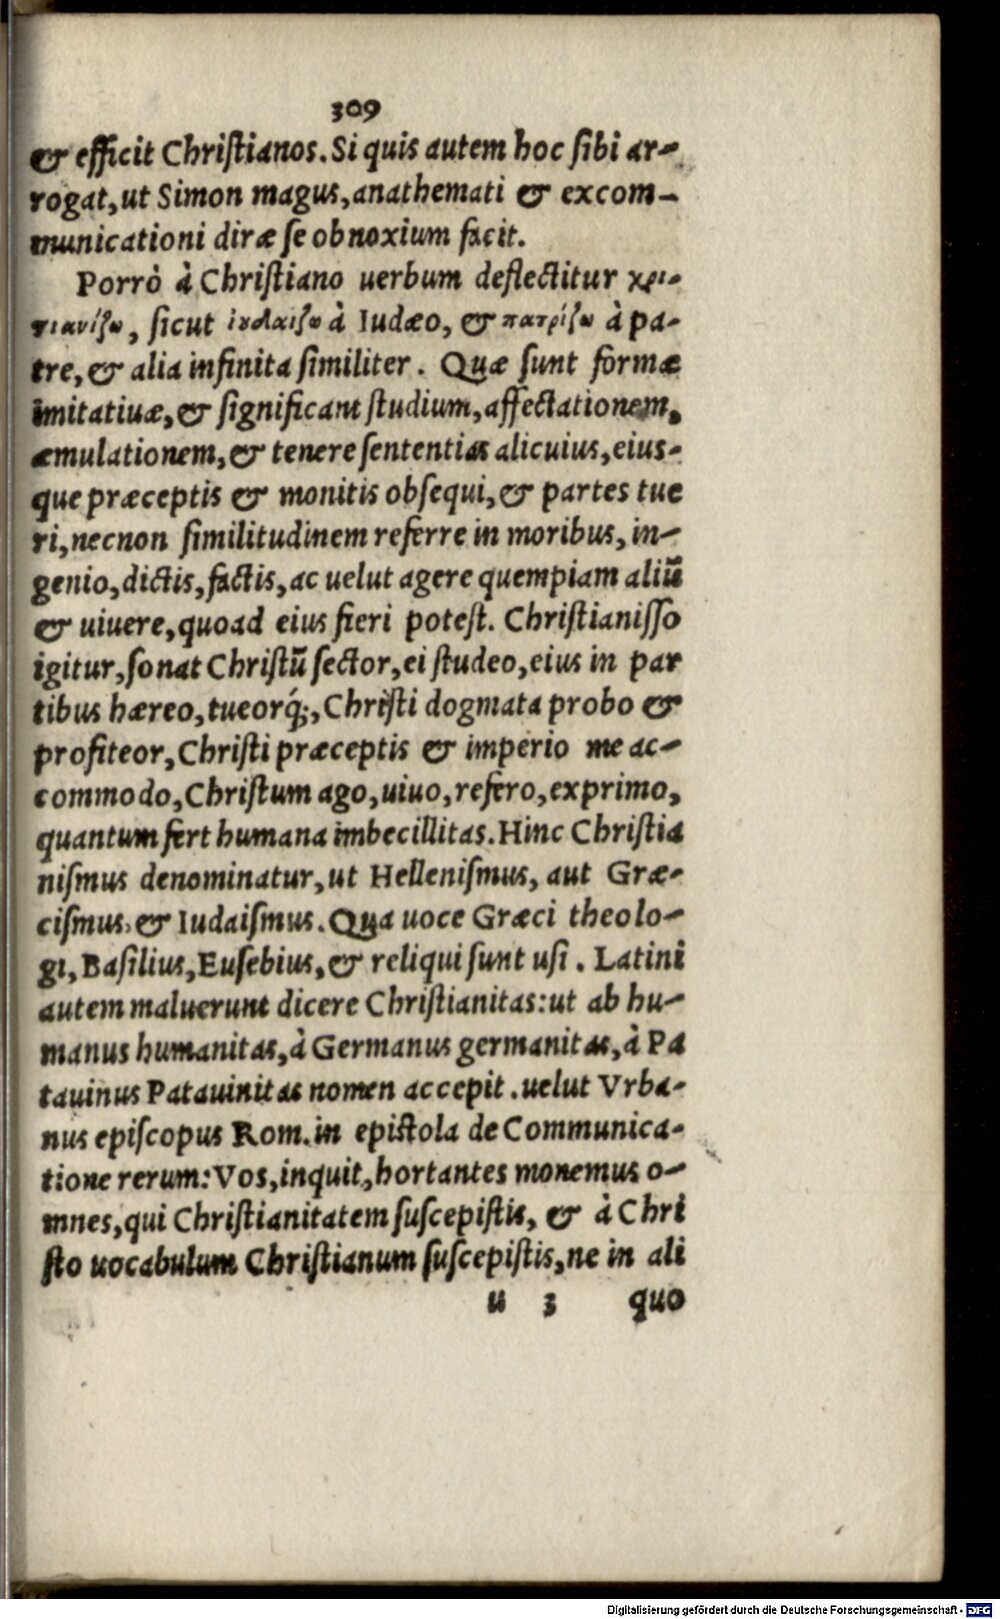 309
& efficit Chriſtianos. Si quis autem hoc ſibi ar-
rogat, ut Simon magus, anathemati & excom-
municationi diræ ſe obnoxium facit.
Porrò à Chriſtiano uerbum deflectitur χρι-
στιανίζω, ſicut ἰουδαιζω à Iudæo, & πατρίζω à pa-
tre, & alia infinita ſimiliter. Quæ ſunt formæ
imitatiuæ, & ſignificant ſtudium, affectationem,
æmulationem, & tenere ſententias alicuius, eius-
que præceptis & monitis obſequi, & partes tue
ri, necnon ſimilitudinem referre in moribus, in-
genio, dictis, factis, ac uelut agere quempiam aliū
& uiuere, quoad eius fieri poteſt. Chriſtianiſſo
igitur, ſonat Chriſtū ſector, ei ſtudeo, eius in par
tibus hæreo, tueorq́;, Chriſti dogmata probo &
profiteor, Chriſti præceptis & imperio me ac-
commodo, Chriſtum ago, uiuo, refero, exprimo,
quantum fert humana imbecillitas. Hinc Chriſtia
niſmus denominatur, ut Helleniſmus, aut Græ-
ciſmus, & Iudaiſmus. Qua uoce Græci theolo-
gi, Baſilius, Euſebius, & reliqui ſunt uſi. Latini
autem maluerunt dicere Chriſtianitas: ut ab hu-
manus humanitas, à Germanus germanitas, à Pa
tauinus Patauinitas nomen accepit. uelut Vrba-
nus epiſcopus Rom. in epiſtola de Communica-
tione rerum: Vos, inquit, hortantes monemus o-
mnes, qui Chriſtianitatem ſuſcepiſtis, & à Chri
ſto uocabulum Chriſtianum ſuſcepiſtis, ne in ali
u 3 quo
Digitalisierung gefördert durch die Deutsche Forschungsgemeinschaft - DFG